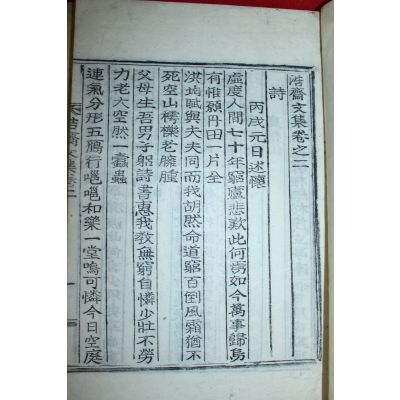 浩齋文集卷之二
詩
丙戌元日述懷
虛度人間七十年窮廬悲歎此何如今萬事歸烏
有惟願丹田一片全
洪均賦與夫夫同而我胡然命道窮百倒風霜猶不
死空山樗櫟老臃腫
父母生吾男子躬詩書惠我敎無窮自憐少壯不勞
力老大空然一蠢蟲
連氣分形五鴈行嗈嗈和樂一堂鳴可憐今日空庭
浩齋文集卷二